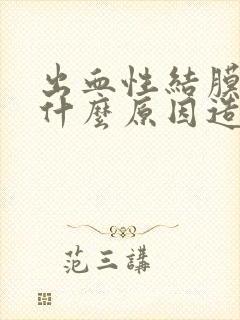 出血性結膜
什麼原因造
范三講